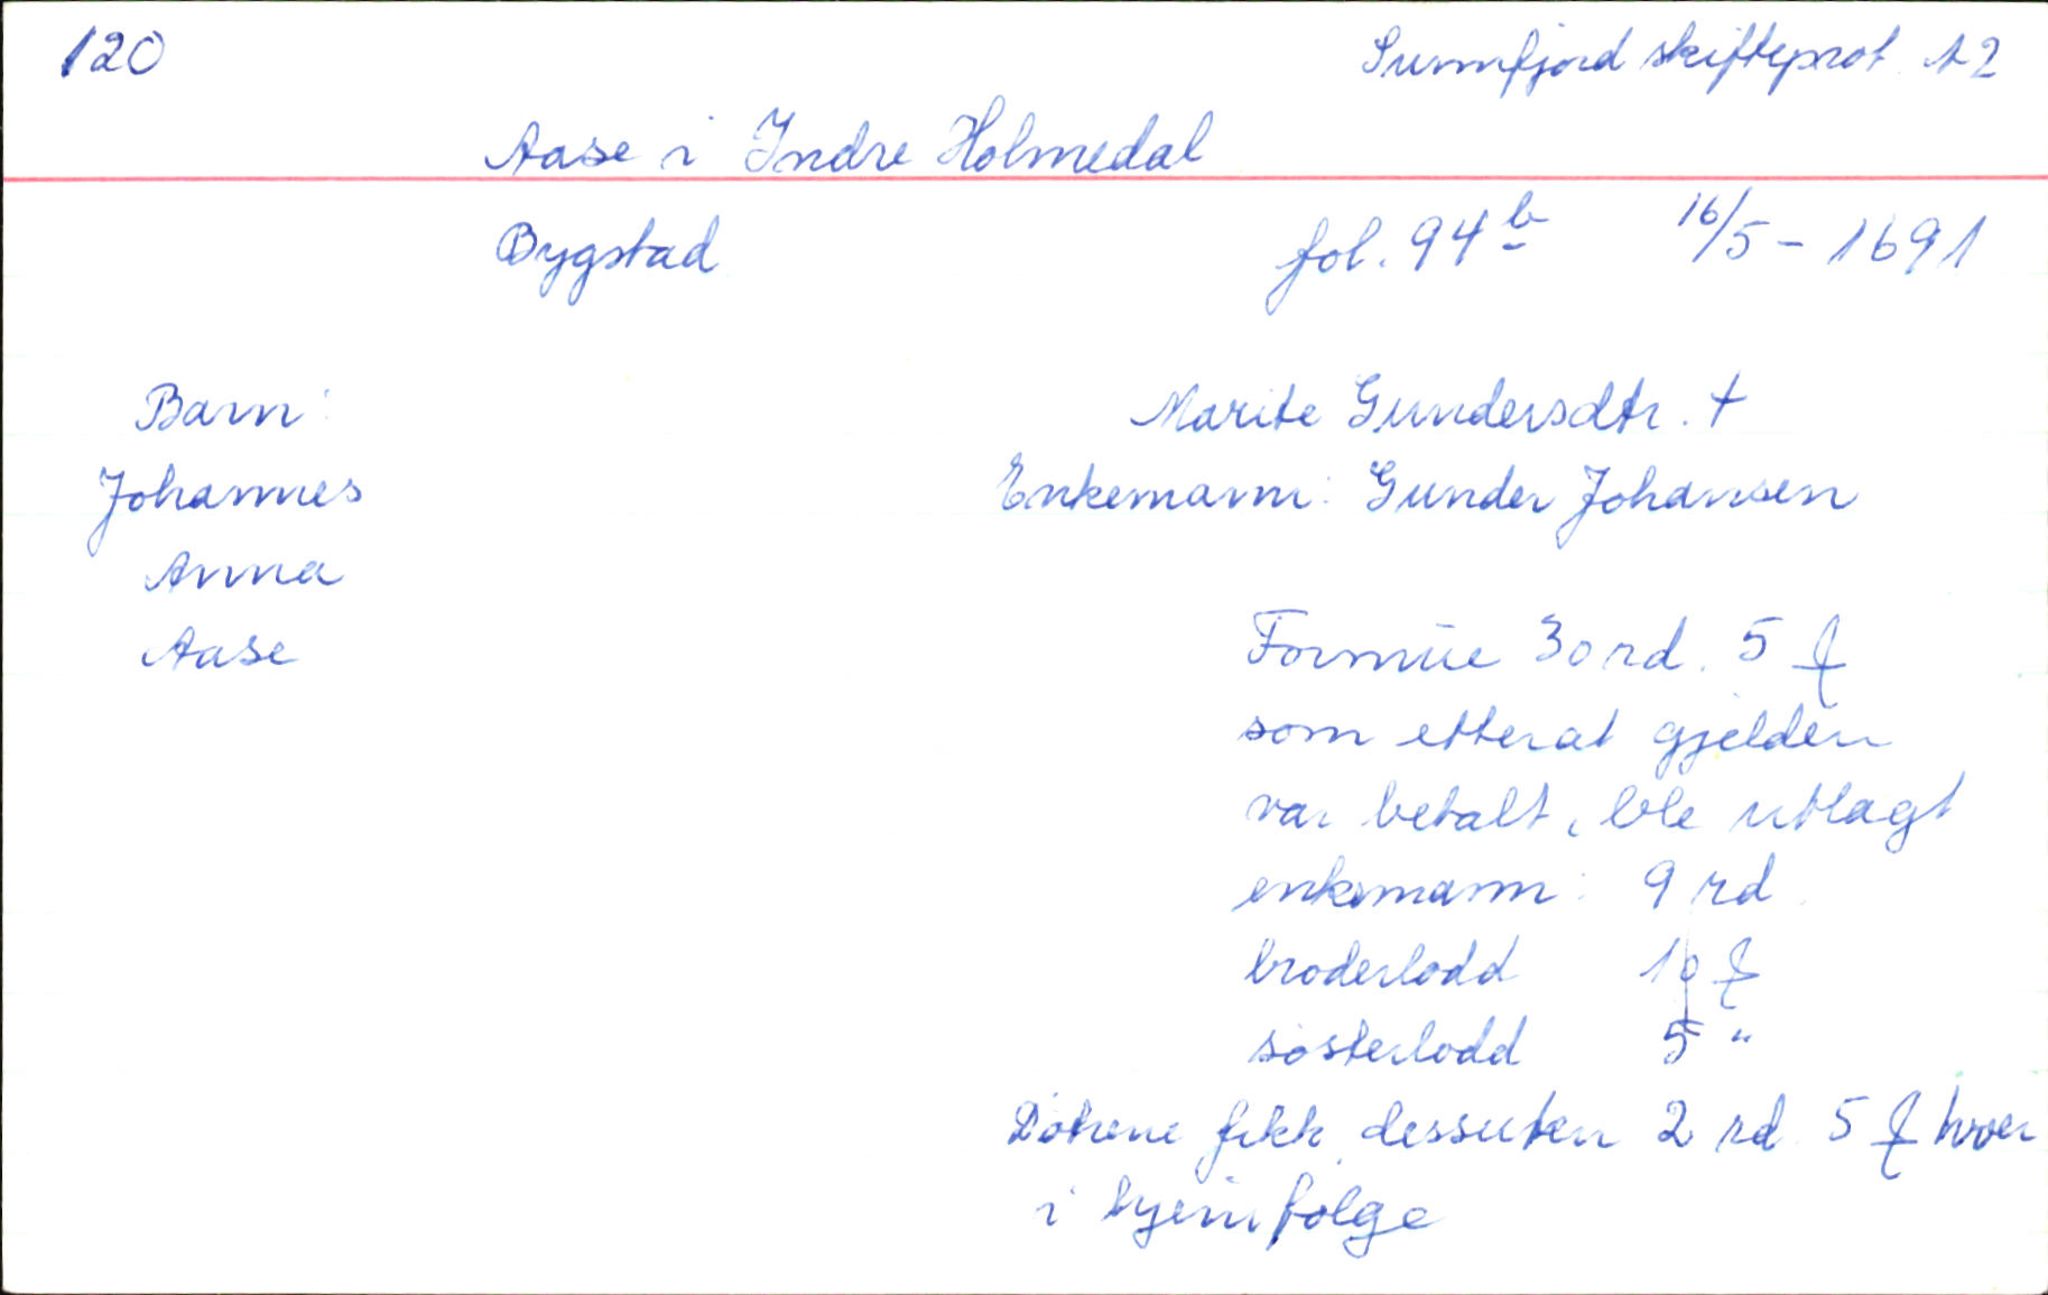 120
Sunnfjord skifteprot. A2
Aase i Indre Holmedal
Bygstad fol. 94 b 16/5 - 1691
Barn: Marite Gundersdtr. †
Johannes Enkemann: Gunder Johansen
Anna
Aase Formue 30 rd. 5 ₰
som etterat gjelden
var betalt, ble utlagt
enkemann: 9 rd
broderlodd 10 ₰
søsterlodd 5 "
Døtrene fikk dessuten 2 rd. 5 ₰ hver
i hjemfølge